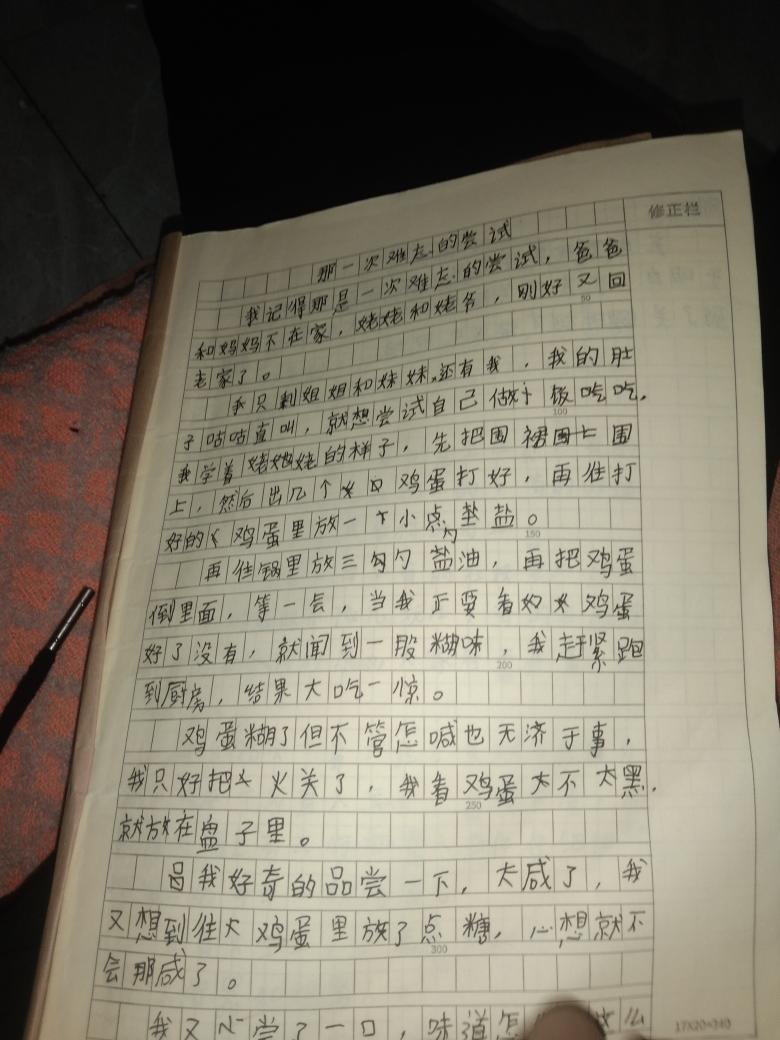 修正栏
那一次难忘的尝试
我记得那是一次难忘的尝试，爸爸
和妈妈不在家，姥姥和姥爷，刚好又回
50
老家了。
我只剩姐姐和妹妹，还有我，我的肚
子咕咕直叫，就想尝试自己做饭吃吃，
100
我学着姥姥的样子，先把围裙围
上，然后出几个鸡蛋打好，再往打
好的鸡蛋里放一小点盐。
150
再往锅里放三勺油，再把鸡蛋
倒里面，等一会，当我正要看鸡蛋
好了没有，就闻到一股糊味，我赶紧跑
200
到厨房，结果大吃一惊。
鸡蛋糊了但不管怎喊也无济于事，
我只好把火关了，我看鸡蛋不太黑，
250
就放在盘子里。
我好奇的品尝一下，太咸了，我
又想到往鸡蛋里放了点糖，心想就不
300
会那咸了。
我又尝了一口，味道怎么
17X20=340